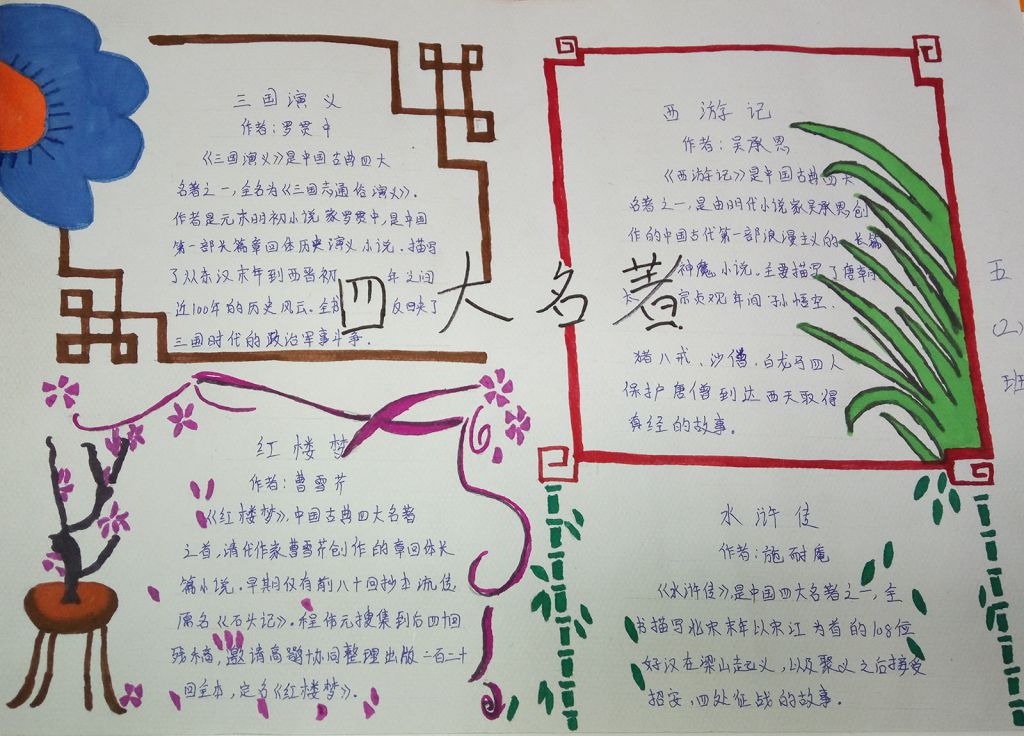 四大名著
三国演义
作者:罗贯中
《三国演义》是中国古典四大
名著之一,全名为《三国志通俗演义》。
作者是元末明初小说家罗贯中,是中国
第一部长篇章回体历史演义小说。描写
了从东汉末年到西晋初 年之间
近100年的历史风云。全 反映了
三国时代的政治军事斗争。
西游记
作者:吴承恩
《西游记》是中国古典四大
名著之一,是由明代小说家吴承恩创
作的中国古代第一部浪漫主义的长篇
神魔小说。主要描写了唐朝
太 宗贞观年间孙悟空.
猪八戒、沙僧、白龙马四人
保护唐僧到达西天取得
真经的故事。
五
(2)
班
红楼梦
作者:曹雪芹
《红楼梦》,中国古典四大名著
之首,清代作家曹雪芹创作的章回体长
篇小说。早期仅有前八十回抄本流传,
原名《石头记》。程伟元搜集到后四十回
残稿,邀请高鹗协同整理出版一百二十
回全本,定名《红楼梦》。
水浒传
作者:施耐庵
《水浒传》,是中国四大名著之一,全
书描写北宋末年以宋江为首的108位
好汉在梁山起义,以及聚义之后接受
招安,四处征战的故事。